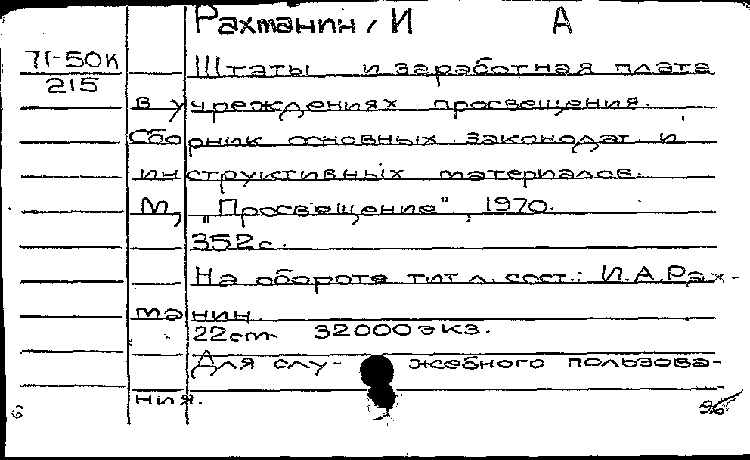 Рахтанин, И А
71-50к
215
Штаты и заработная плата
в учреждениях просвещения.
Сборник основных законодат. и
инструктивных материалов.
М, „Просвещение", 1970.
352с.
На обороте тит л. сост.: И.А.Рах-
танин.
22см 32000 экз.
Для слу- жебного пользова-
ния.
6 96